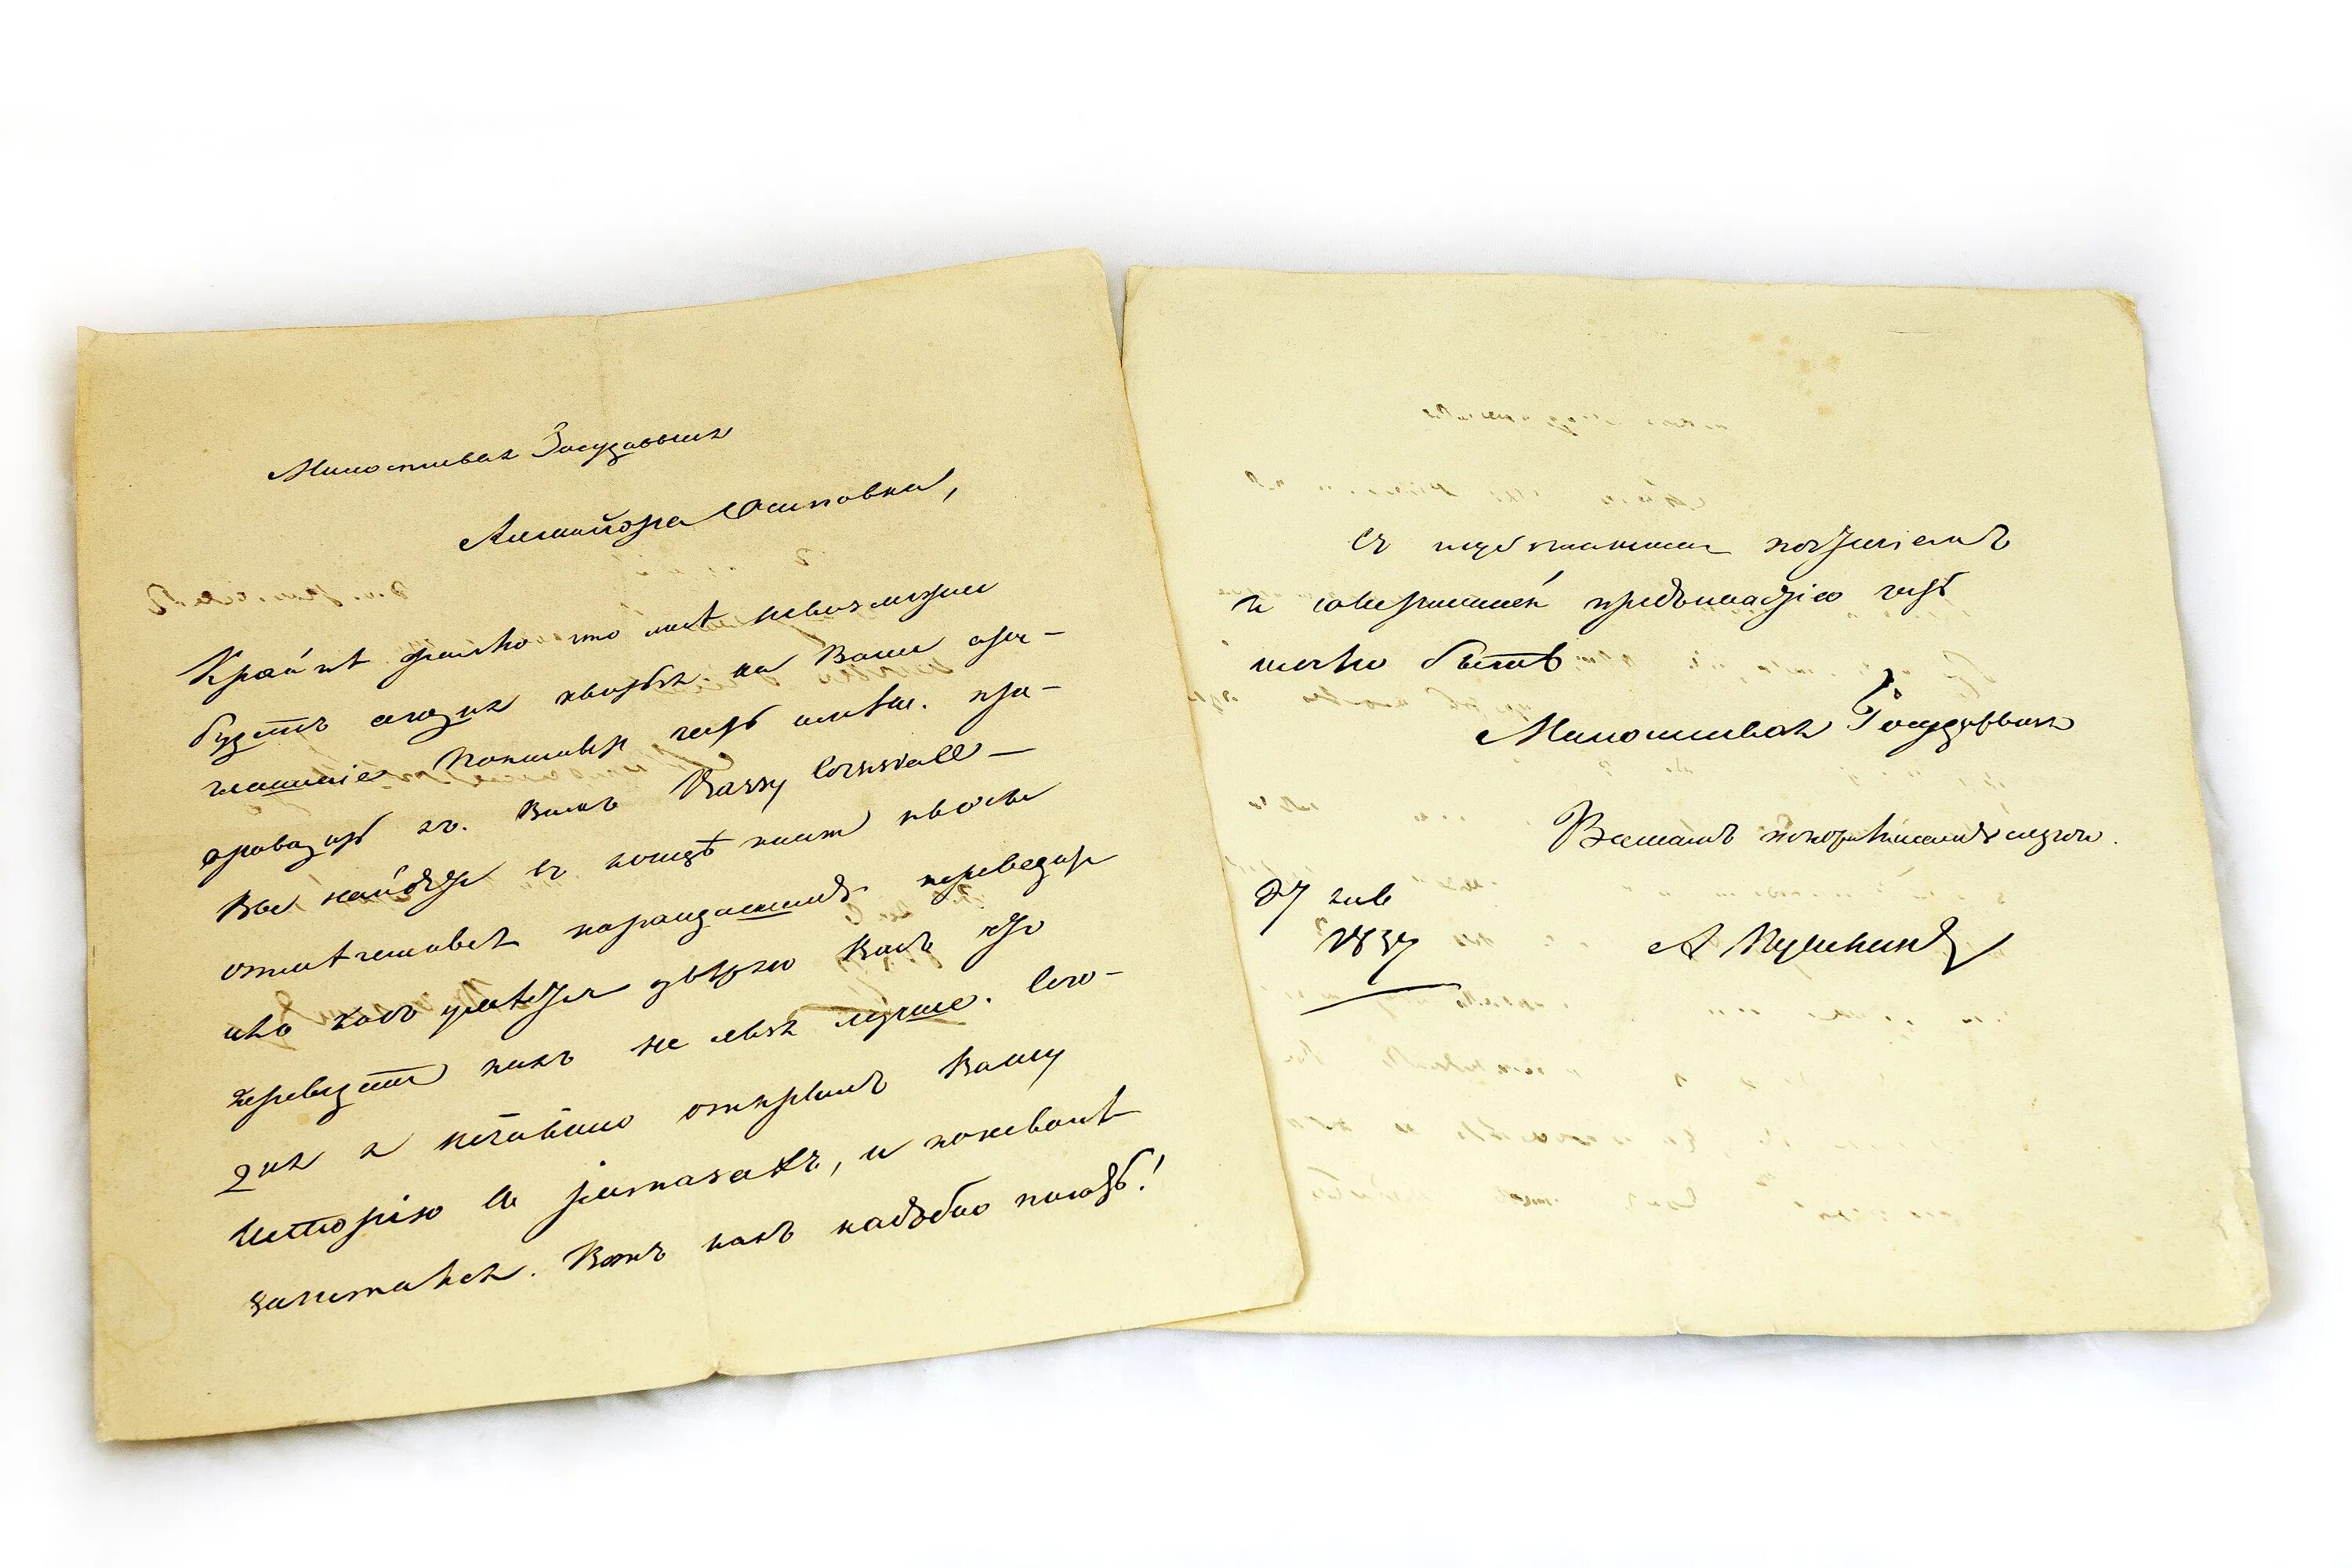 Милостивая Государыня
Александра Осиповна,
Крайнѣ жалѣю что мнѣ невозможно
будетъ сегодня явиться на Ваше при-
глашеніе. Покамѣстъ честь имѣю пре-
проводить къ Вамъ Barry Cornwall —
Вы найдете въ концѣ книги пьесы
отмѣченныя карандашомъ, переведите
ихъ какъ умѣете — увѣряю Васъ что
переведете какъ не льзя лучше. Сего-
дня я нечаянно открылъ Вашу
Исторію въ разсказахъ, и поневолѣ
зачитался. Вотъ какъ надобно писать!
Съ глубочайшимъ почтеніемъ
и совершенной преданностію честь
имѣю быть
Милостивая Государыня
Вашимъ покорнѣйшимъ слугою.
27 янв
1837
А Пушкинъ